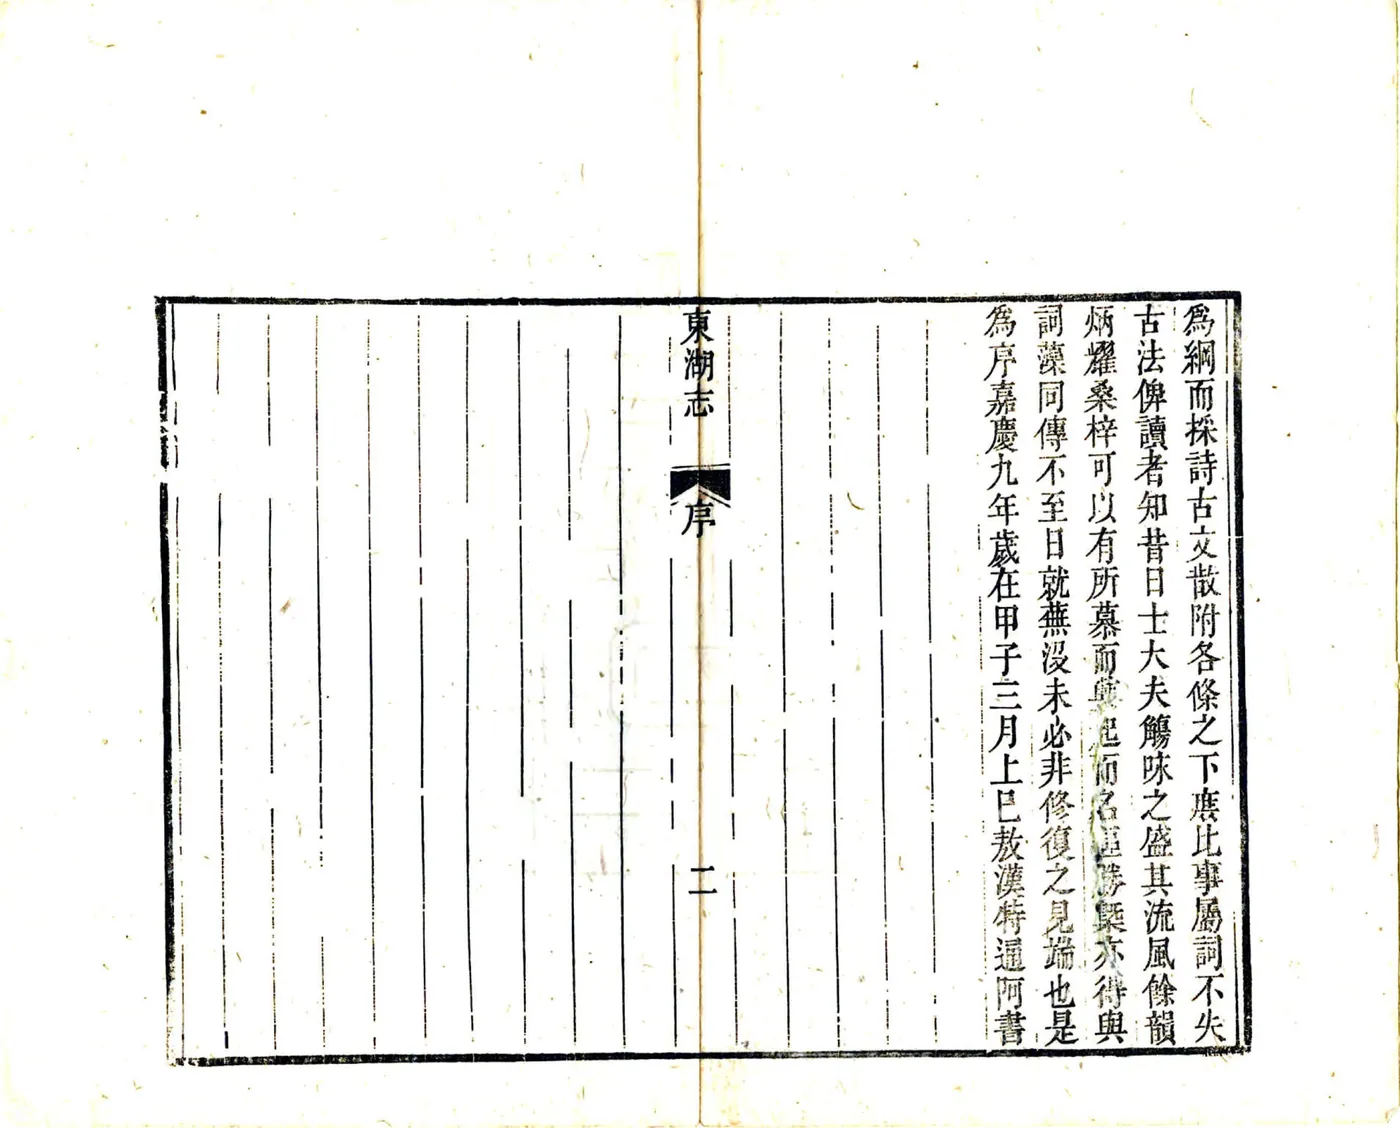 爲綱而採詩古文散附各條之下庶比事屬詞不失
古法俾讀者知昔日士大夫觴咏之盛其流風餘韻
炳耀桑梓可以有所慕而興起而名區勝槩亦得與
詞藻同傳不至日就蕪沒未必非修復之見端也是
爲序嘉慶九年歲在甲子三月上巳敖漢特通阿書
東湖志
序
二